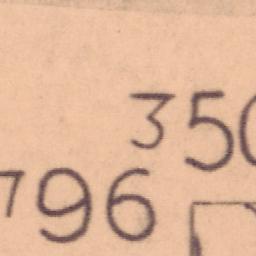 350
796